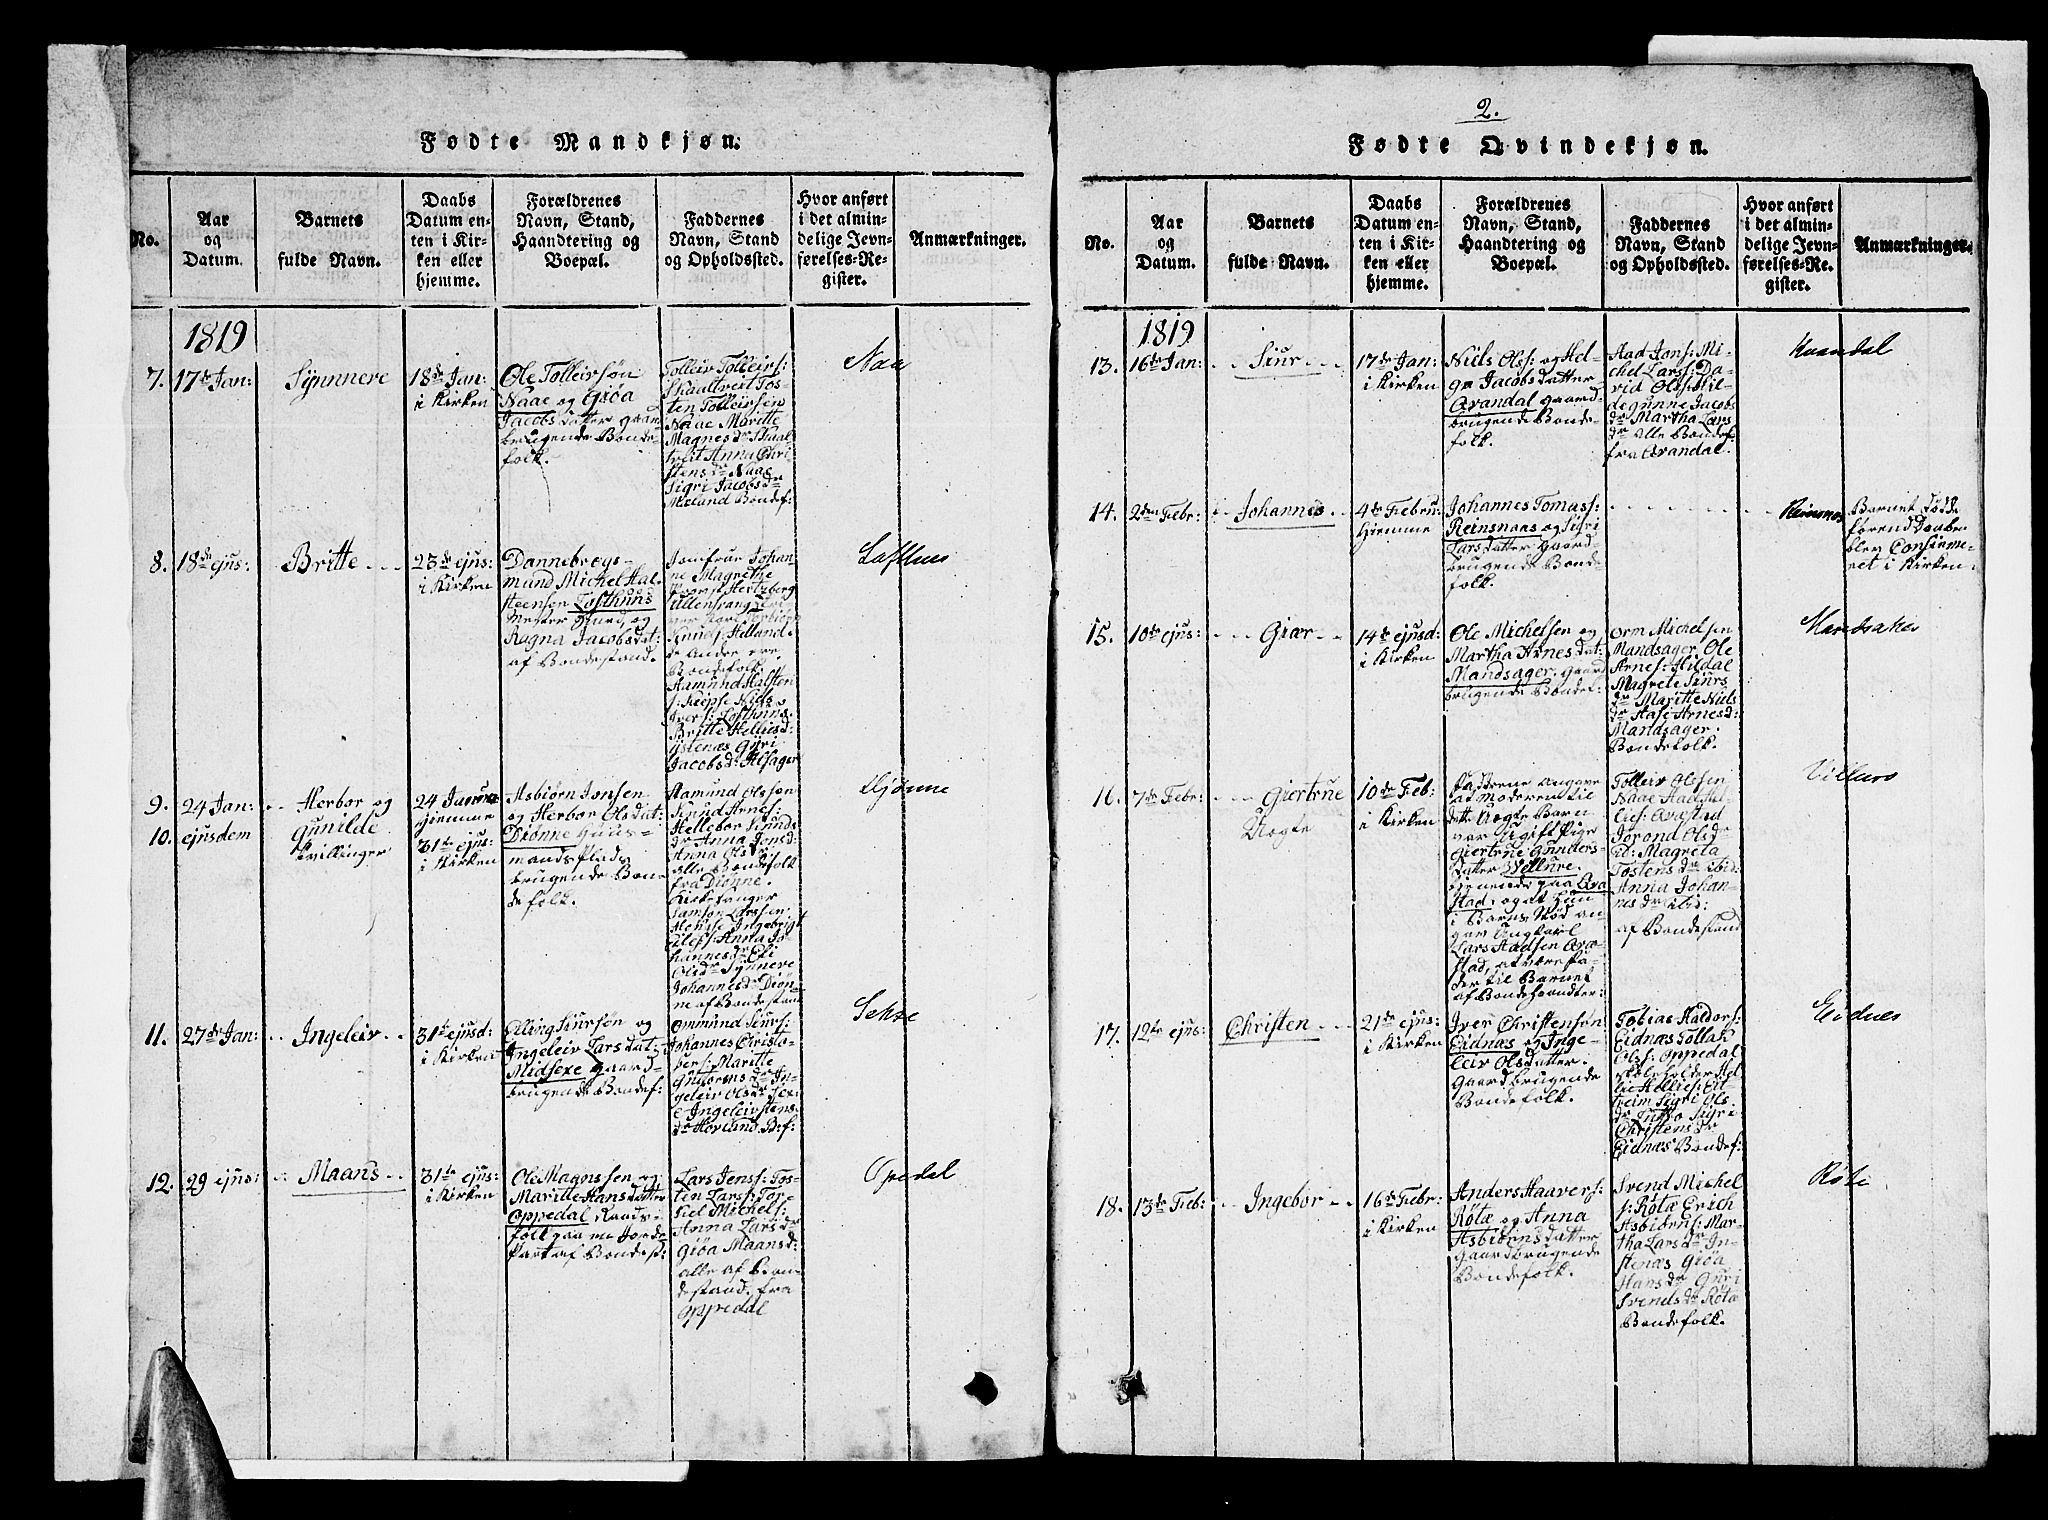 Fødte Mandkjøn.
No.
Aar
og
Datum.
Barnets
fulde Navn.
Daabs
Datum en-
ten i Kir-
ken eller
hjemme.
Forældrenes
Navn, Stand,
Haandtering og
Boepæl.
Faddernes
Navn, Stand
og Opholdssted.
Hvor anført
i det almin-
delige Jevn-
førelses-Re-
gister.
Anmærkninger.
1819
7.
17de Jan:
Synnere
18de Jan:
i Kirken
Ole Tolleirsøn
Naae og Giøa
Jacobsdatter gaard
brugende Bonde-
folk.
Tolleiv Tolleirs:
Skaaltveit Tos-
ten Tolleirsen
Naae Maritte
Magnesdr Skual
tveit Anna Chri-
stensdr Naae
Sigri Jacobsdr
Meland Bondef:
Naa
8.
18de ejus:
Britte
23de ejus:
i Kirken
Dannebrogs-
mand Michel Hal-
steensen Lofthuus
og
Ragna Jacobsdat:
af Bondestand.
Jomfrue Johan-
ne Magrethe
Hertzberg
Ullensvang
Helland
de andre ere
Bondefolk
Aamund Halsten
s: Nils
Ivers: Lofthuus
Britte Helliesd:
Ystenæs Gyri
Jacobsd: Alsager
Lofthus
9.
24 Jan:
10.
ejusdem
Herbor og
Gunilde
tvillinger
24 Januar
hjemme
31te ejus:
i Kirken
Asbiørn Jonsen
og Herbor Olsdat:
Diønne Huus-
mandsplads
brugende Bon-
de folk.
Aamund Olssen
Siuud Arnes:
Hellebor Siuuds
dr Anna Jonsd:
Anna Olsdr
alle Bondefolk
fra Diønne.
Kirkesanger
Samson Larssen
Ingebrigt
Eilefs: Anna Jo-
hannesdr Eli
Olsdr Synnere
Johannesdr Diøn-
ne af Bondestand
Djønne
11.
27de Jan:
Ingeleiv
31te ejusd:
i Kirken
Elling Siursøn og
Ingeleiv Larsdat:
Midsexe gaard-
brugende Bondef:
Ommund Siurs:
Johannes Christo-
pers: Maritte
Guttormsdr In-
geleiv Olsdr Sex-
e Ingeleiv Stens-
dr Hovland B.f:
Sekse
12.
29 ejus:
Maans
31te ejus:
i Kirken
Ole Magnssen og
Maritte Hansdatter
Oppedal
Lars Jens: Tos-
ten Lars: Tor-
kiel Michels:
Anna Larsdr
Giøa Maansd:
alle af Bon-
destand fra
Oppedal
Opedal
2.
Fødte Qvindekjøn.
No.
Aar
og
Datum.
Barnets
fulde Navn.
Daabs
Datum en-
ten i Kir-
ken eller
hjemme.
Forældrenes
Navn, Stand,
Haandtering og
Boepæl.
Faddernes
Navn, Stand
og Opholdssted.
Hvor anført
i det almin-
delige Jevn-
førelses-Re-
gister.
Anmærkninger.
1819
13.
16de Jan:
Siur
17de Jan:
i Kirken
Niels Ols: og Hel-
ga Jacobsdatter
Qvandal gaard-
brugende Bonde-
folk.
Aad Jons: Mi-
chel Lars: Da-
vid Ols: Hil-
degunne Jacobs
dr Martha Lars
dr alle Bondef
fra Qvandal.
Kvandal
14.
2den Febr:
Johannes
4de Febru:
hjemme
Johannes Tomass:
Reinsnaas og Sigri
Larsdatter gaard-
brugende Bonde-
folk.
Reinsnos
Barnet døde
førend Daaben
blev Confirme-
ret i Kirken.
15.
10de ejus:
Giær
14te ejusd:
i Kirken
Ole Michelsen og
Martha Arnesdat:
Mandsager gaard
brugende Bondef:
Orm Michelsen
Mandsager Ole
Arnes: Hildal
Magrete Siurs
dr Maritte Niels
dr Aase Arnesd:
Mandsager
Bondefolk.
Mandsaker
16.
7de Febr:
Giertrue
Uægte
10de Feb:
i Kirken
Fadderne angave
at Moderen til
dette Uægte Barn
var Ugift Pige
Giertrue Gunders-
datter Vellure
tienende paa Qva
stad, og at hun
i Barns Nød an-
gav Ungkarl
Lars Aadsen Qva-
stad, at være Fa-
der til Barnet
af Bondestanden:
Tolleiv Olssen
Naae Aad
Qvastad
Jorond Olsdr
ib: Magreta
Tostensdr ibid:
Anna Johan-
nesdr ibid:
af Bondestand
Villure
17.
12te ejus:
Christen
21de ejus:
i Kirken
Iver Christensøn
Eidnæs og Inge-
leiv Olsdatter
gaardbrugende
Bondefolk.
Tobias Haldors:
Eidnæs Tollak
Ols: Oppedal
Skoleholder Hel-
lie Hellies: Eit
reim Sigri Ols-
dr Lutto Sigri
Christensdr
Eidnæs Bondef:
Eidnes
18.
13de Feb:
Ingebor
16de Febr:
i Kirken
Anders Haavers:
Røtæ og Anna
Asbiørnsdatter
gaardbrugende
Bondefolk.
Svend Michel
s: Røtæ Erich
Asbiørns: Mar-
tha Larsdr In-
stenæs Giøa
Hansdr Guri
Svendsdr Røtæ
Bondefolk.
Røte